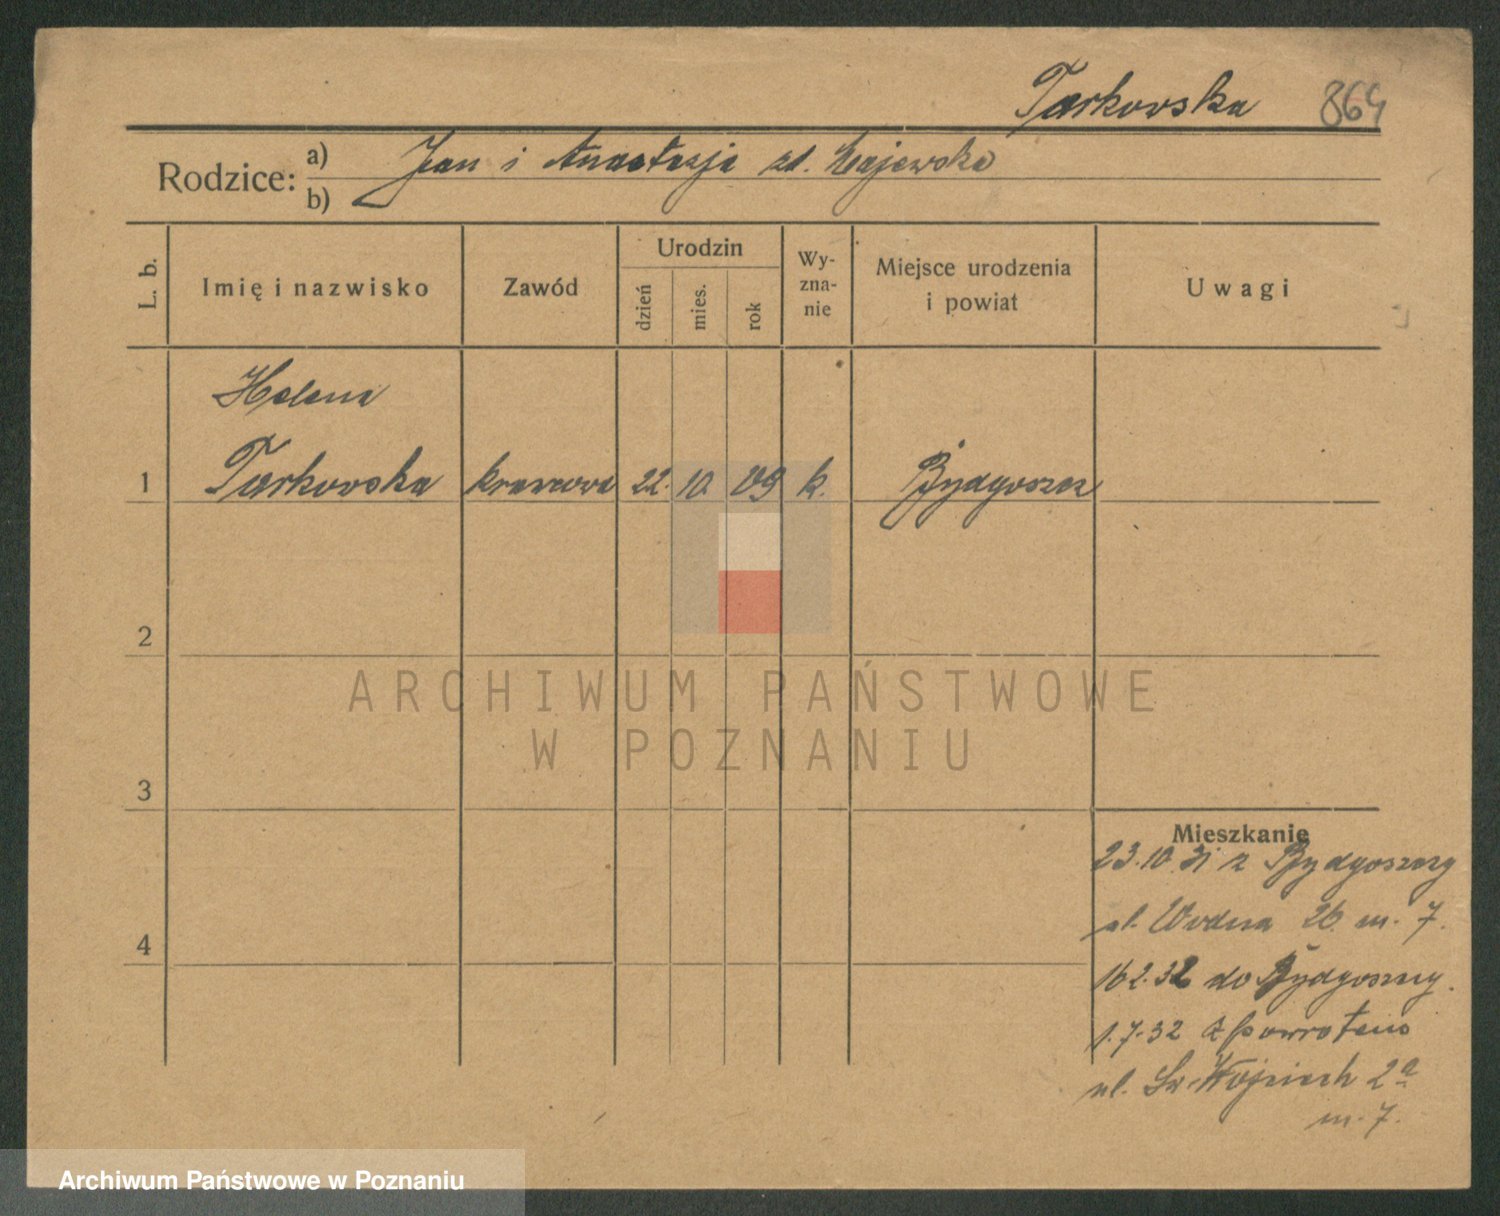 Tarkowska 864
Rodzice: a) Jan i Anastazja zd. Majewska
b)
L. b. Imię i nazwisko Zawód Urodzin dzień mies. rok Wy-zna-nie Miejsce urodzenia i powiat Uwagi
Helena
1 Tarkowska krawcowa 22. 10. 09 k. Bydgoszcz
2
ARCHIWUM PAŃSTWOWE
W POZNANIU
3
Mieszkanie
23.10.31 z Bydgoszczy
ul. Wodna 26 m. 7.
4
16.2.32 do Bydgoszczy.
1.7.32 z powrotem
ul. Św. Wojciech 2a
m. 7.
Archiwum Państwowe w Poznaniu